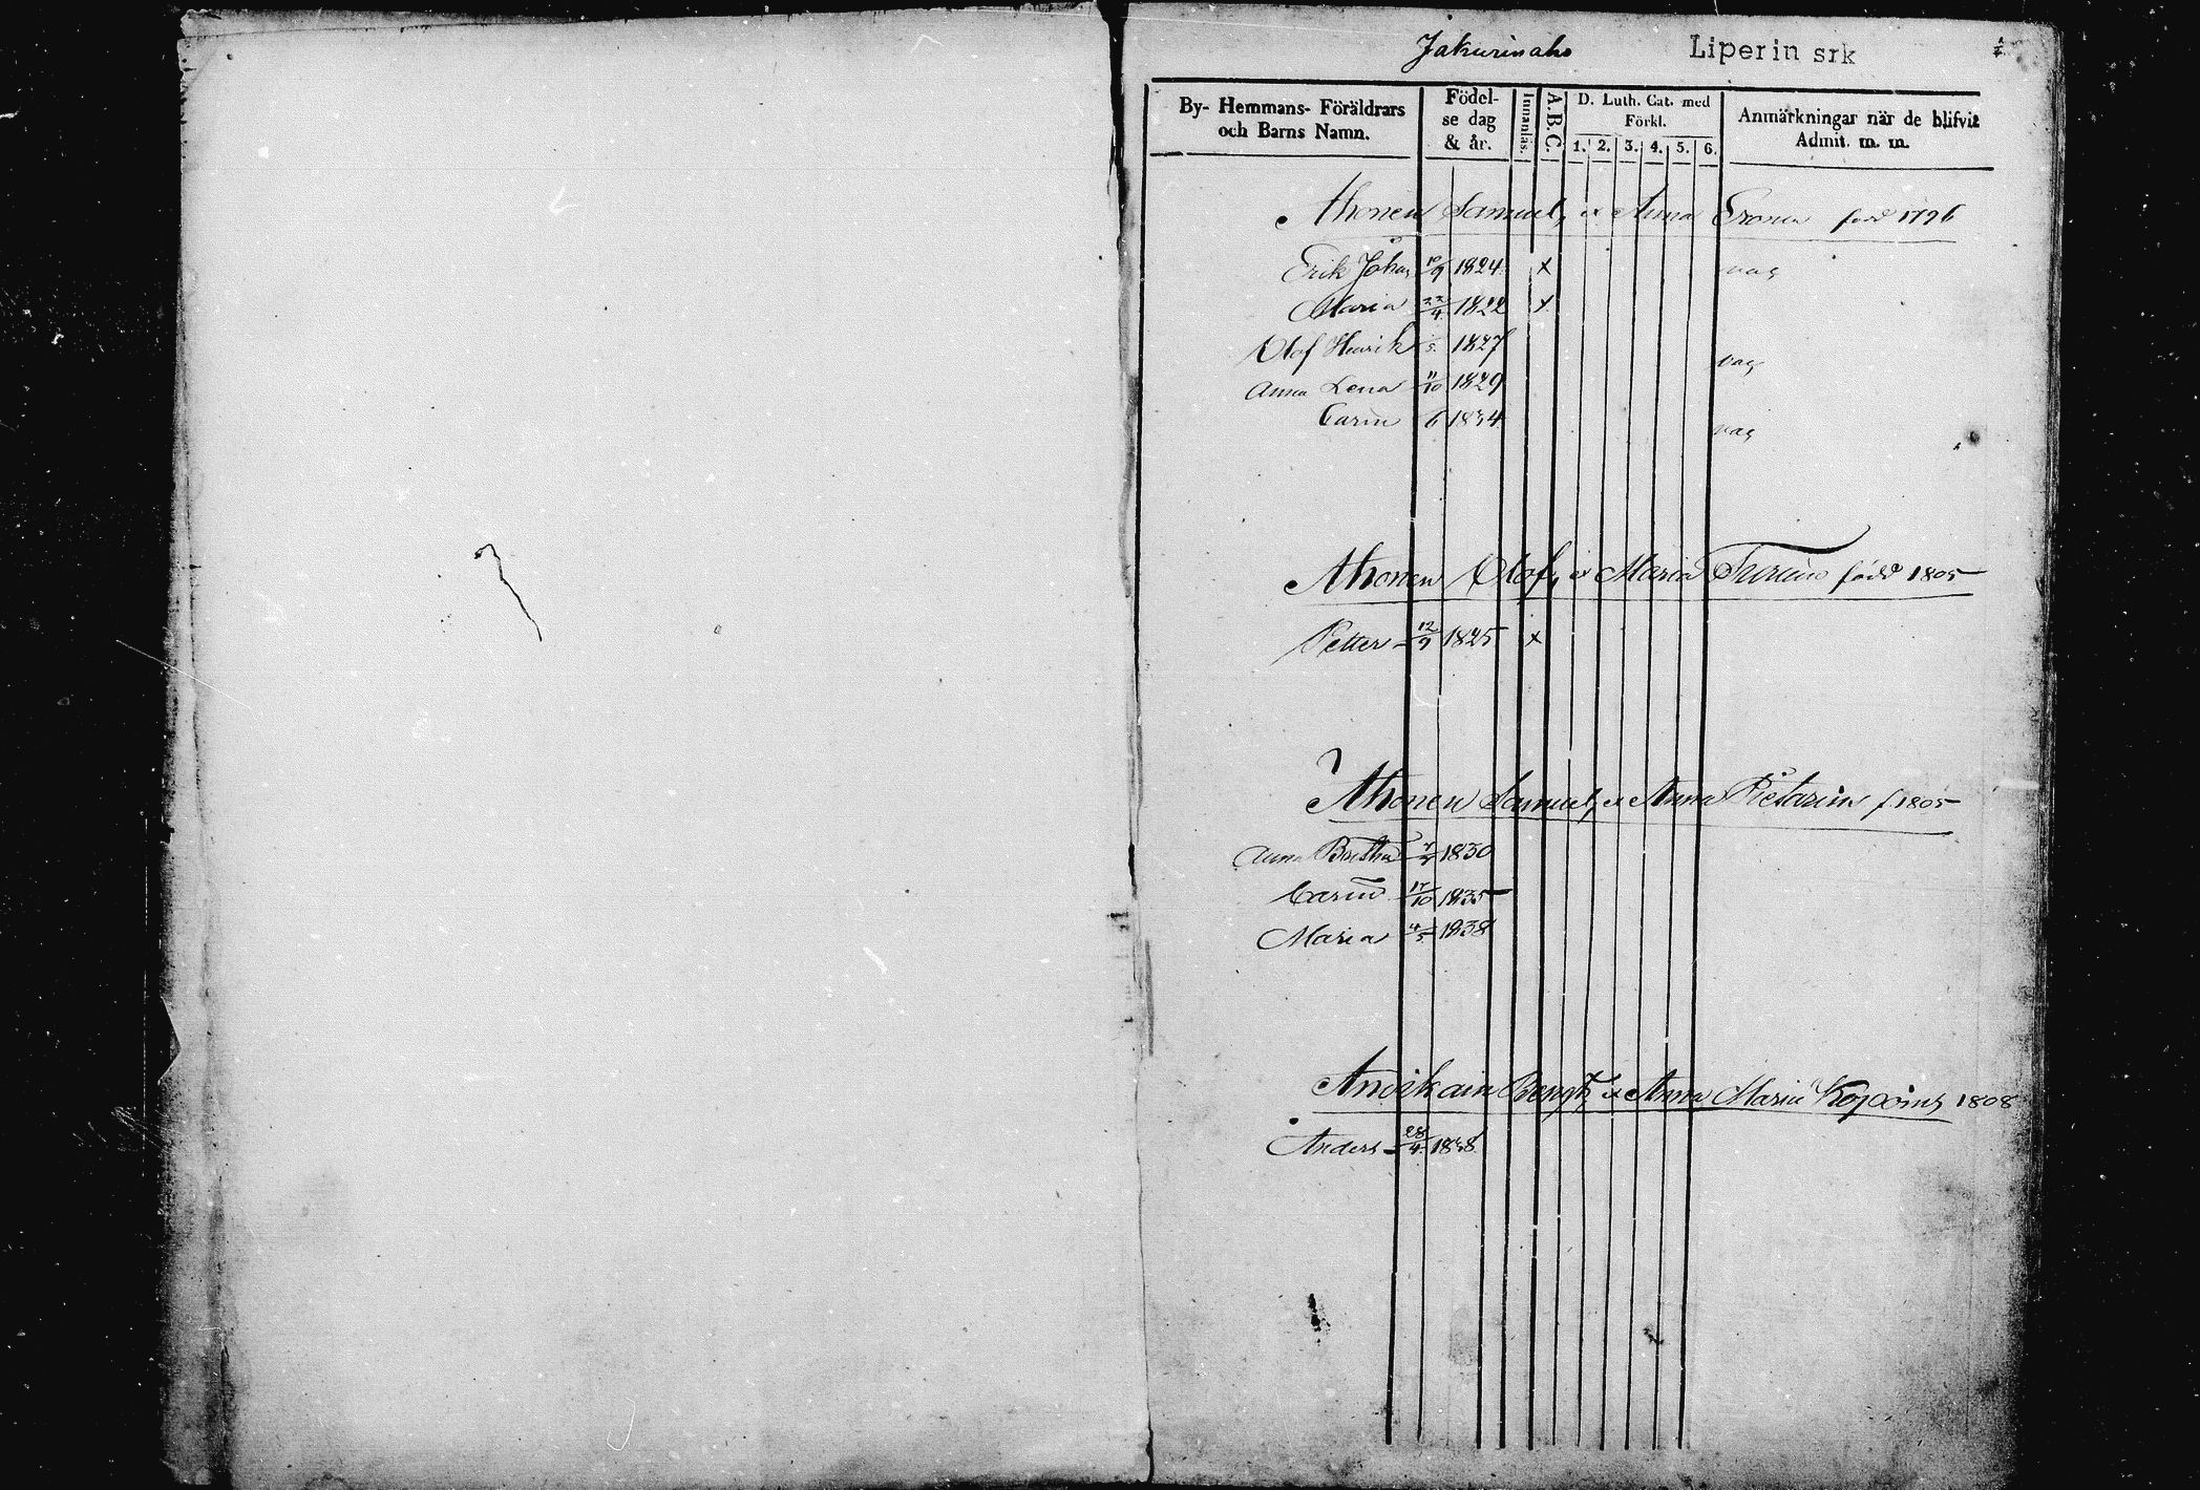 Jakurinaho Liperin srk
By- Hemmans- Föräldrars
och Barns Namn.
Födel-
se dag
& år.
Innanläs.
A.B.C.
D. Luth. Cat. med
Förkl.
1. 2. 3. 4. 5. 6.
Anmärkningar när de blifvit
Admit. m. m.
Ahonen Samuel, Anna född 1796
Erik Johan 10/9 1824 x vac
Maria 22/4 1822 x
Olof Henrik 5. 1827 vac
Anna Lena 11/10 1829
Carin 6 1834 vac
Ahonen Olof, Maria född 1805
Petter 12/9 1825 x
Ahonen Samuel, Anna Pietarine f. 1805
Anna Britha 1830
Carin 17/10 1835
Maria 4/5 1838
Bengt, Anna Maria 1808
Anders 28/4 1838